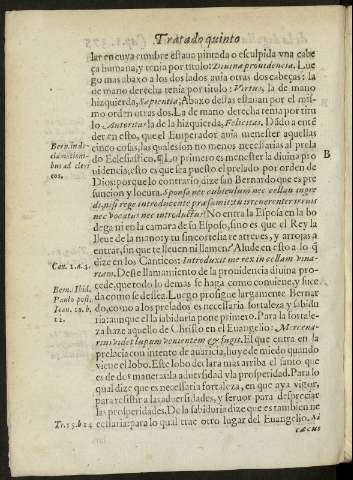 Tratado quinto
lar en cuya cumbre estaua pintada o esculpida vna cabe
ça humana, y tenia por titulo: Diuina prouidencia. Lue
go mas abaxo a los dos lados auia otras dos cabeças: la
de mano derecha tenia por titulo: Virtus, la de mano
hizquierda, Sapientia; Abaxo destas estauan por el mis
mo orden otras dos. La de mano derecha tenia por titu
lo Autoritas: la de la hizquierda, Felicitas. Dādo a entē
der en esto, que el Emperador auia menester aquellas
cinco cosas, las quales son no menos necessarias al prela
do Eclesiastico. ¶ Lo primero es menester la diuina pro
uidencia, esto es que sea puesto el prelado por orden de
Dios: porque lo contrario, dize san Bernardo que es pre
suncion y locura. Sponsa nec cubiculum nec cellam ingre
di, nisi rege introducente præsumit: tu irreuerenter irruis
nec vocatus nec introductus? No entra la Esposa en la bo
dega ni en la camara de su Esposo, sino es que el Rey la
lleue de la mano: y tu sin certeza te atreues, y arrojas a
entrar, sin que te lleuen ni llamen? Alude en esto a lo q̄
dize en los Canticos: Introduxit me rex in cellam vina
riam. Deste llamamiento de la prouidencia diuina pro
cede, que todo lo demas se haga como conuiene, y suce
da como se dessea. Luego prosigue largamente Bernar
do, como a los prelados es necessaria fortaleza y sabidu
ria: aunque el la sabiduria pone primero. Para la fortale
za haze aquello de Christo en el Euangelio: Mercena-
rius videt lupum venientem & fugit. El que entra en la
prelacia con intento de auaricia, huye de miedo quando
viene el lobo. Este lobo declara mas arriba el santo que
es de dos maneras: la aduersidad y la prosperidad. Para lo
qual dize que es necessaria fortaleza, en que aya vigor,
para resistir a las aduersidades, y feruor para despreciar
las prosperidades. De la sabiduria dize que es tambien ne
cessaria: para lo qual trae otro lugar del Euangelio. Si
cæcus
Bern. in de-
bus ad cleri
cos.
B
Can. 1. a. 4.
Bern. Ibid.
Paulo post.
Ioan. 10. b.
12.